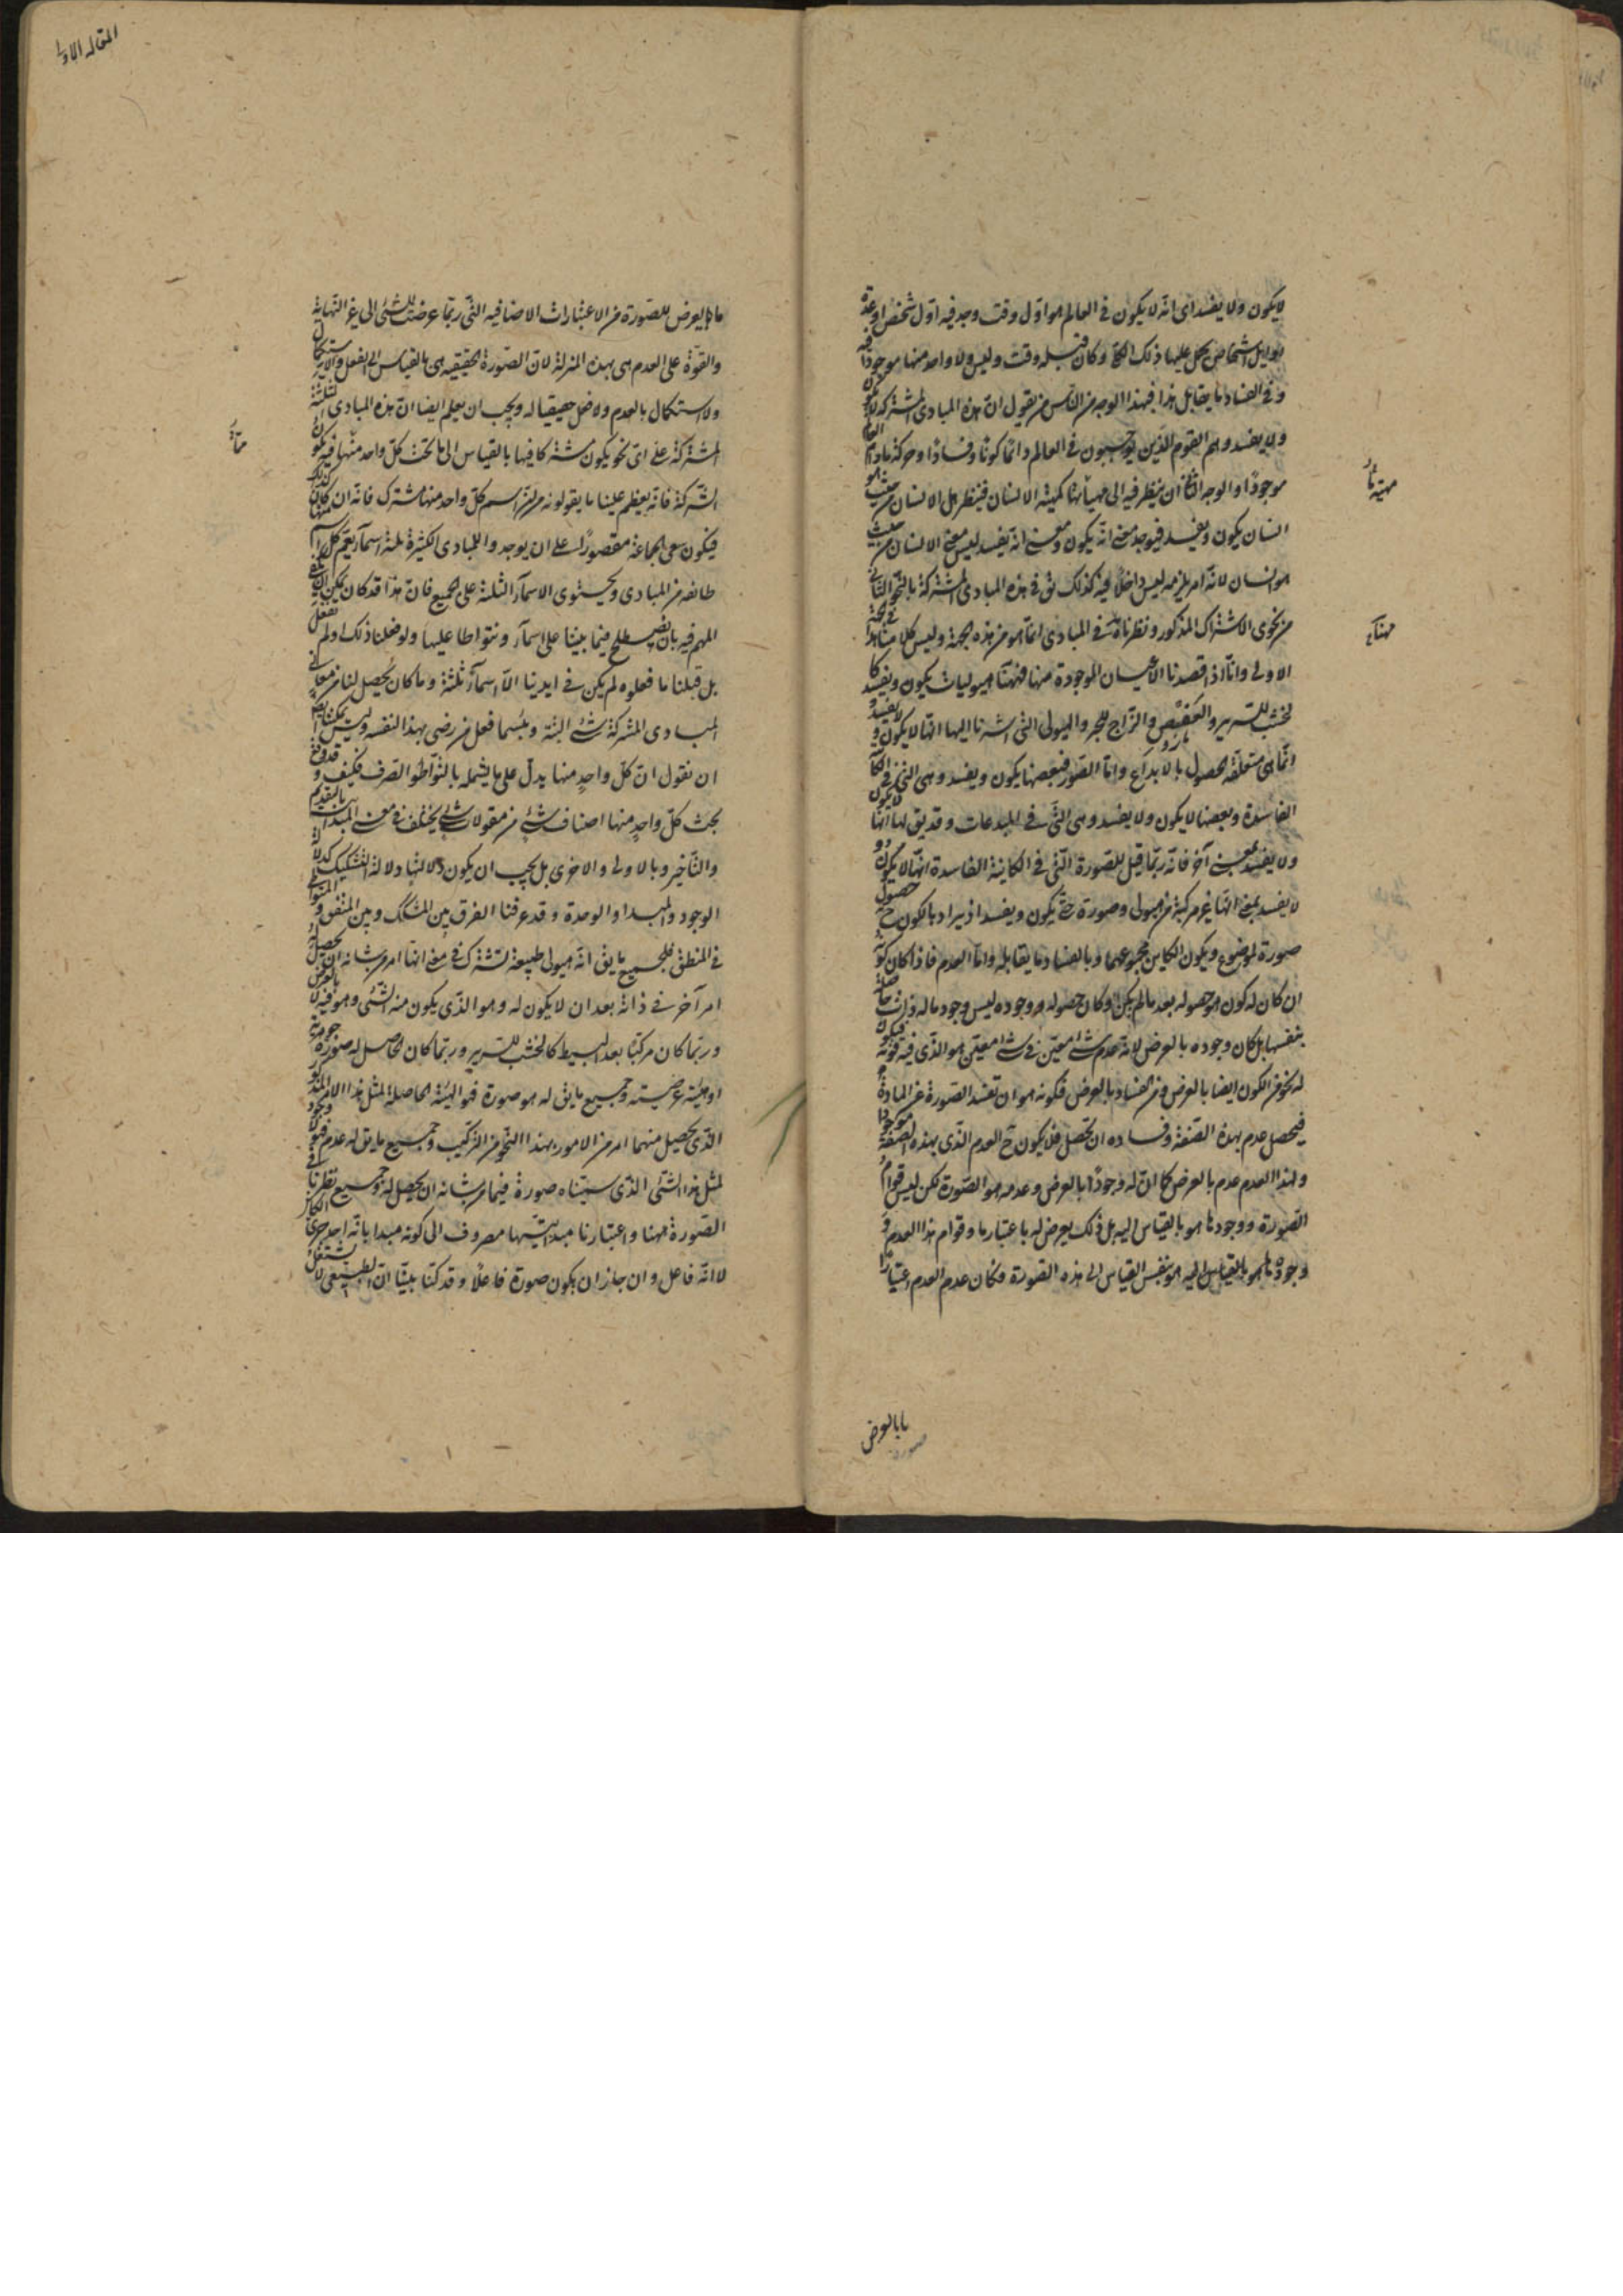 لايكون ولا يفسد اى انه لا يكون فى العالم هو اوّل وقت وجد فيه اوّل شخص او عدة
اوايل اشخاص يحمل عليها ذلك الكلى وكان قبله وقت وليس ولا واحد منها موجودا فيه
وفى الفساد ما يقابل هذا فبهذا الوجه من الناس من يقول ان هذه المبادى المشتركة لا يكون
ولا يفسد وهم القوم الذين يوجبون فى العالم دائما كونا وفسادا وحركة مادام العالم
موجودا والوجه الثانى ان ينظر فيه الى مهية ما كمهية الانسان فينظر هل الانسان من حيث هو
انسان يكون ويفسد فيوجد معنى انه يكون ومعنى انه يفسد ليس معنى الانسان من حيث
هو انسان لانه امر يلزمه ليس داخلا فيه كذلك يق فى هذه المبادى المشتركة بالنحو الثانى
من نحوى الاشتراك المذكور ونظرنا هذا فى المبادى انما هو من هذه الجهة وليس كلامنا هذا فى الجهة
الاولى وامّا اذا قصدنا الاعيان الموجودة منها فههنا هيوليات يكون ويفسد كا
لخشب للسرير والعفص والزاج للحبر والهيولى التى اشرنا اليها انها لا يكون ولا يفسد و
انما هى متعلقة الحصول بالابداع وامّا الصور فبعضها يكون ويفسد وهى التى فى الكائنة
الفاسدة وبعضها لا يكون ولا يفسد وهى التى فى المبدعات وقد يق لها انها لا يكون
ولا يفسد بمعنى آخر فانه ربّما قيل للصورة التى فى الكاينة الفاسدة انها لا يكون و
لا يفسد بمعنى انها غير مركبة من هيولى وصورة حتى يكون ويفسد اذ يراد بالكون ح حصول
صورة لموضوع ويكون الكاين مجموعهما وبالفساد ما يقابله وامّا العدم فاذا كان كونه
ان كان له كون هو حصوله بعد مالم يكن وكان حصوله ووجوده ليس وجود ماله ذات حاصلة
بنفسها بل كان وجوده بالعرض لانه عدم شئ معيّن فى شئ معيّن هو الذى فيه قوته فيكون
له نحو من الكون ايضا بالعرض ومن الفساد بالعرض فكونه هو ان تفسد الصورة عن المادة
فيحصل عدم بهذه الصفة وفساده ان تحصل فلا يكون ح العدم الذى بهذه الصفة موجودا
ولهذا العدم عدم بالعرض كما ان له وجودا بالعرض وعدمه هو الصورة لكن ليس قوام
الصورة ووجودها هو بالقياس اليه بل ذلك يعرض له باعتبار ما وقوام هذا العدم و
وجوده ما هو بالقياس اليه هو بنفس القياس الى هذه الصورة وكان عدم العدم اعتبارا
مهية ما
ههنا
ما بالعرض
المقالة الاولى
ما يعرض للصورة من الاعتبارات الاضافيه التى ربّما عرضت للشئ الى غير النهاية
والقوّة على العدم هى بهذه المنزلة لان الصورة الحقيقيه هى بالقياس الى الفعل والاستكمال
ولا استكمال بالعدم ولا فعل حقيقيا له ويجب ان يعلم ايضا ان هذه المبادى الثلثة
المشتركة على اى نحو يكون مشتركا فيها بالقياس الى ما تحت كل واحد منها فيه يكون
الشركة فانه يعظم علينا ما يقولونه من ان اسم كل واحد منها مشترك فانه ان كان كذلك
فيكون سعى الجماعة مقصورا على ان يوجد واللمبادى الكثيرة ثلثة اسمآء يعم كل اسم منها
طائفة من المبادى ويحتوى الاسمآء الثلثة على الجميع فان هذا قد كان يمكن ان يكفى
المهم فيه بان يصطلح فيما بيننا على اسمآء ونتواطا عليها ولو فعلنا ذلك او لم نفعل
بل قبلنا ما فعلوه لم يكن فى ايدينا الا اسمآء ثلثة وما كان يحصل لنا من معانى
المبادى المشتركة شئ البتة وبئسما فعل من رضى بهذا لنفسه وليس يمكننا ايضا
ان نقول ان كل واحد منها يدل على ما يشمله بالتواطؤ الصرف فكيف وقد وقع
تحت كل واحد منها اصناف شتى من مقولات شتى يختلف فى معنى المبدائية بالتقديم
والتأخير وبالاولى والاخرى بل يجب ان يكون دلالتها دلالة التشكيك كدلالة
الوجود والمبدا والوحدة وقد عرفنا الفرق بين المشكك وبين المتفق والمتواطى
فى المنطق فلجميع ما يق انه هيولى طبيعة تشترك فى معنى انها امر من شانه ان يحصل له
امر آخر فى ذاته بعد ان لا يكون له وهو الذى يكون منه الشئ وهو فيه لا بالعرض
وربّما كان مركبّا بعد البسيط كالخشب للسرير وربّما كان الحاصل له صورة جوهرية
او هيئة عرضية وجميع ما يق له هو صورة فهو الهيئة الحاصلة لمثل هذا الامر المذكور
الذى يحصل منهما امر من الامور بهذا النحو من التركيب وجميع ما يق له عدم فهو لا وجود
لمثل هذا الشئ الذى سميناه صورة فيما من شانه ان يحصل له وجميع نظرنا فى
الصورة ههنا واعتبارنا مبدئيتها مصروف الى كونه مبدا بانه احد جزئ الكائن
لا انه فاعل وان جاز ان يكون صورة فاعلا وقد كنّا بيّنا ان الطبيعى لا يشتغل